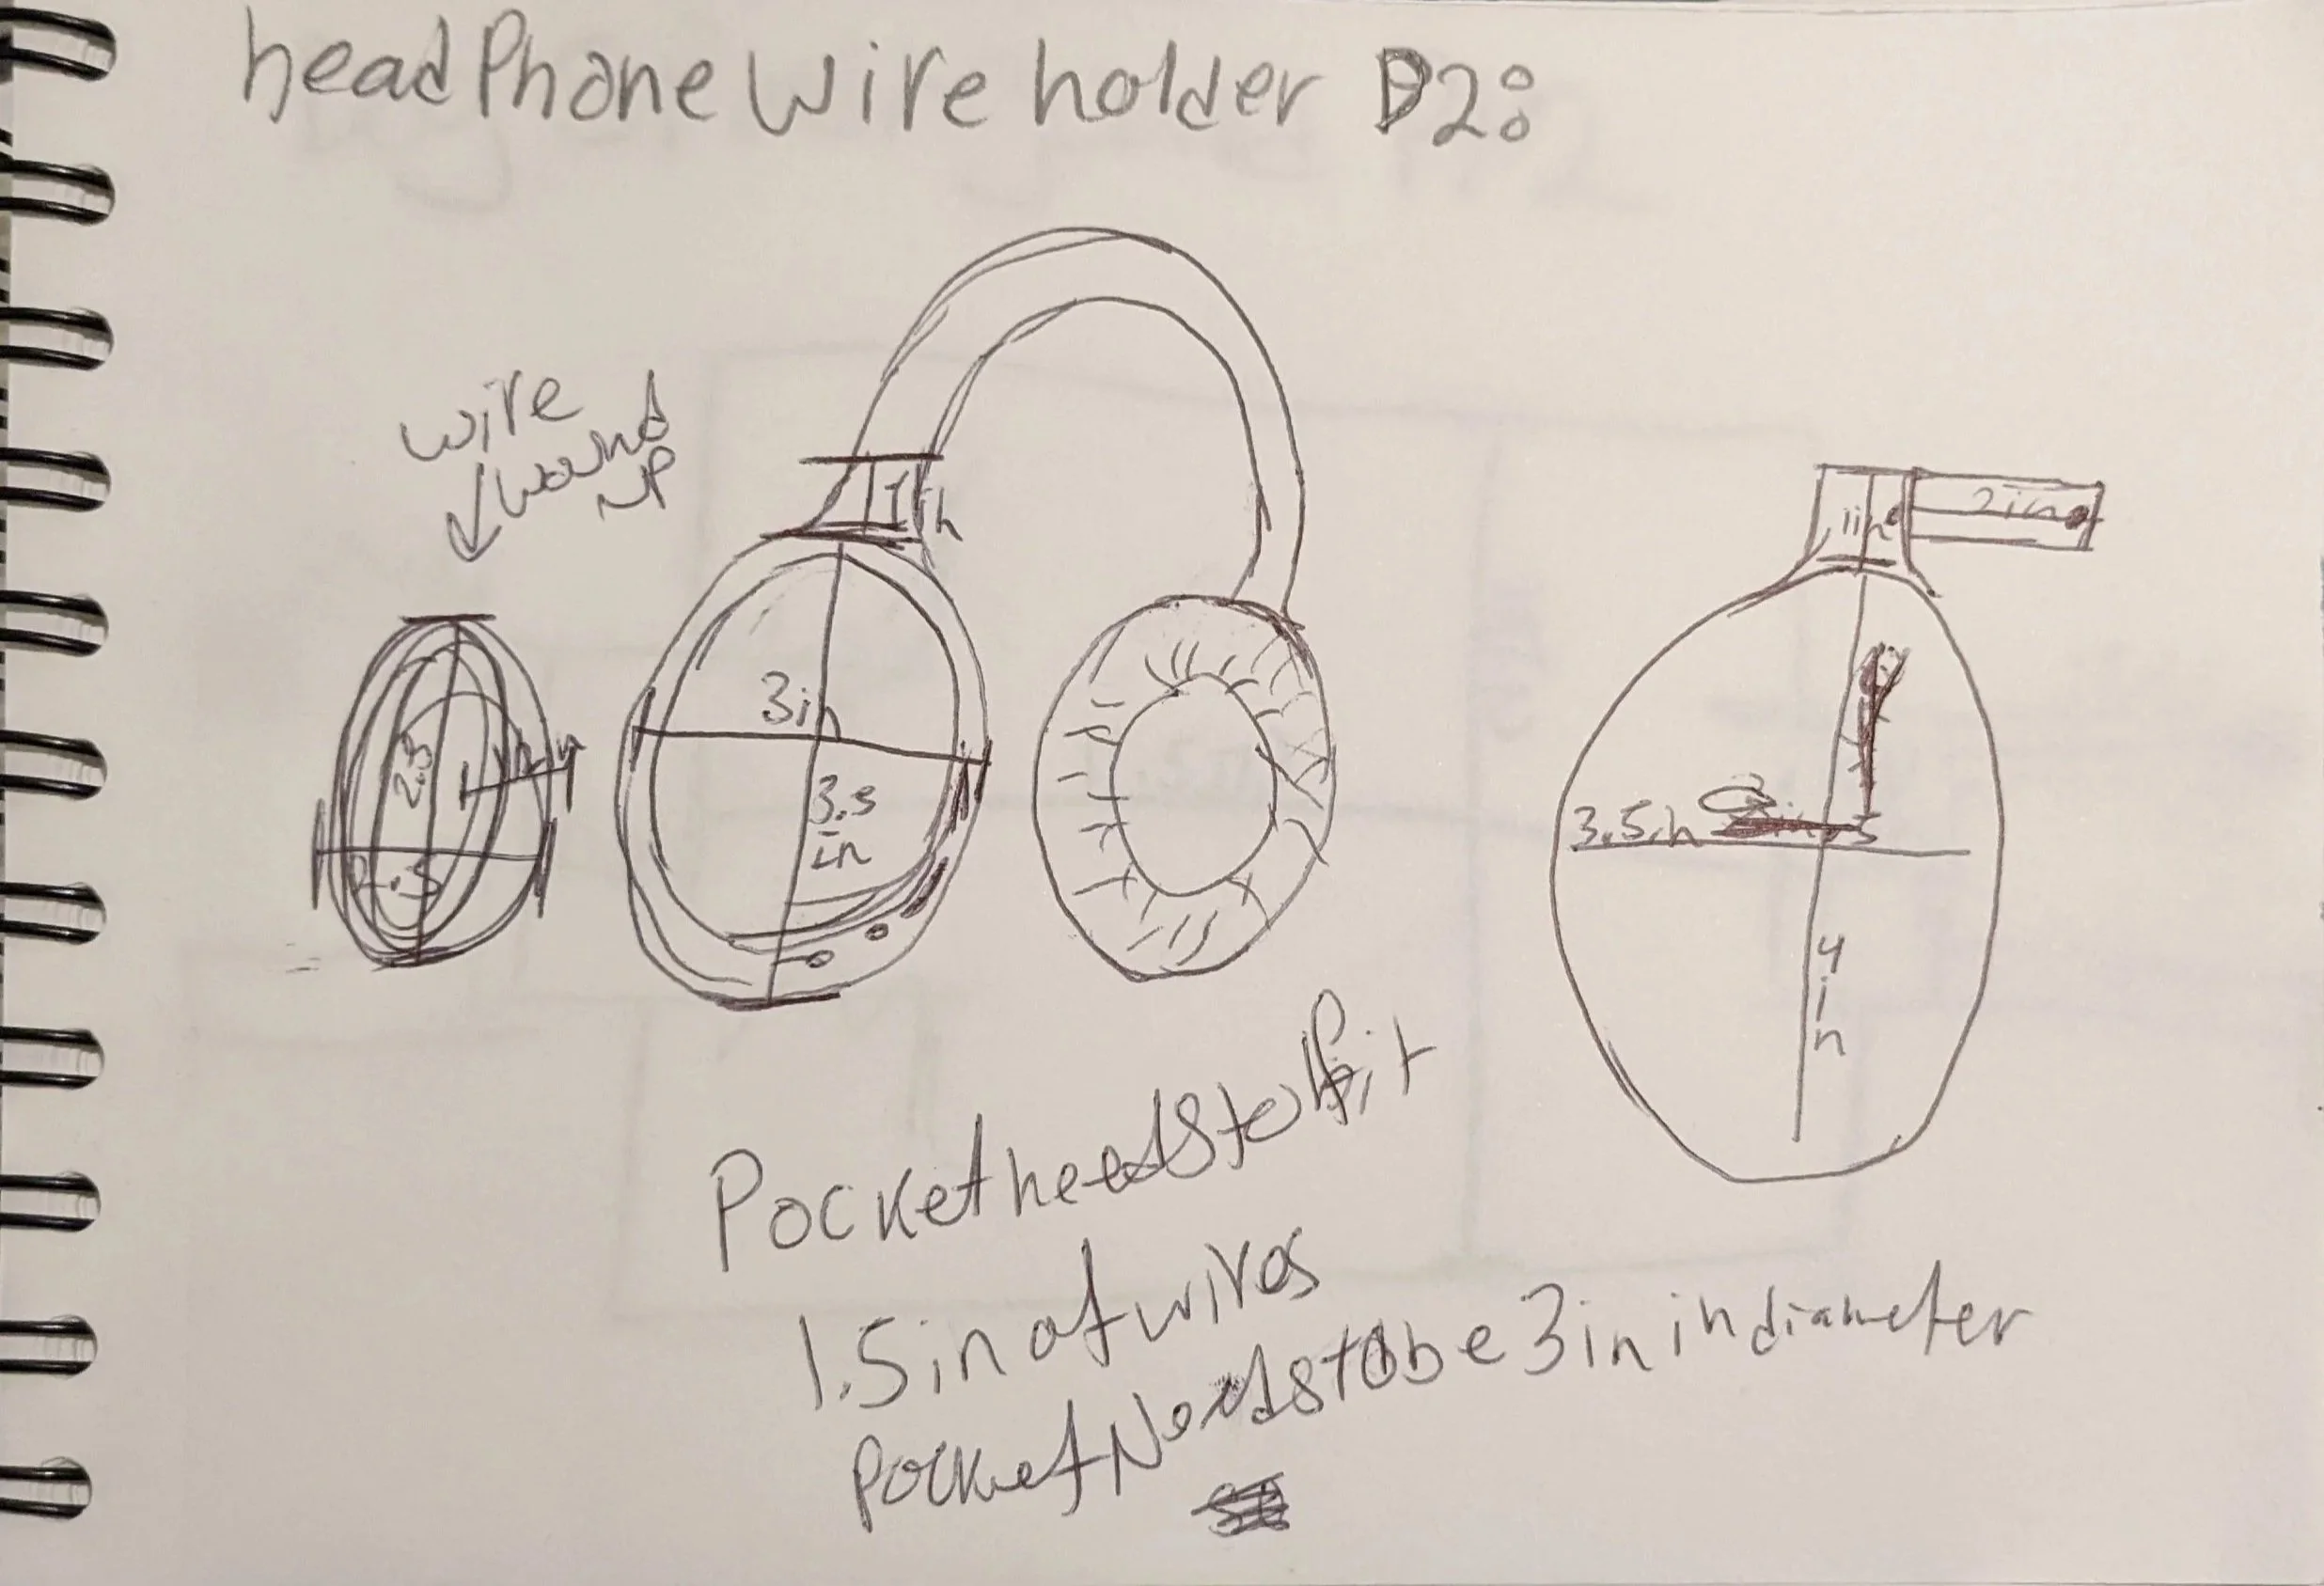 headPhone wire holder D2:
wire
wound
up
1in
3in
3.5
in
2.5
2.5
1in
2in
3.5in
4
in
Pocket needs to fit
1.5in of wires
Pocket Needs to be 3in in diameter